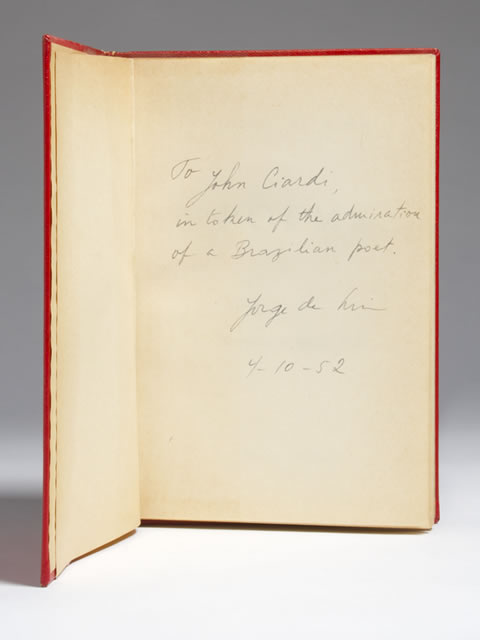 To John Ciardi,
in token of the admiration
of a Brazilian poet.
Jorge de Lima
4-10-52